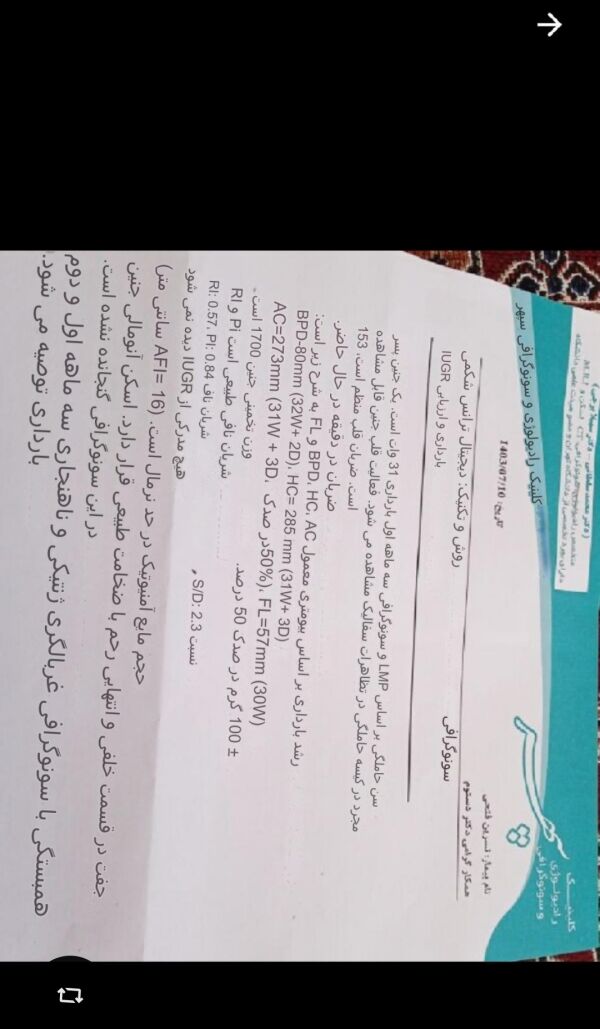 کلینیک
رادیولوژی
و سونوگرافی
کلینیک رادیولوژی و سونوگرافی سپهر
نام بیمار: نسرین فتحی
همکار گرامی دکتر دستوم
تاریخ: 1403/07/10
سونوگرافی
روش و تکنیک: دیجیتال ترانس شکمی
بارداری و ارزیابی IUGR
سن حاملگی بر اساس LMP و سونوگرافی سه ماهه اول بارداری 31 وات است. یک جنین پسر
مجرد در کیسه حاملگی در تظاهرات سفالیک مشاهده می شود. فعالیت قلب جنین قابل مشاهده
است. ضربان قلب منظم است. 153
ضربان در دقیقه در حال حاضر.
رشد بارداری بر اساس بیومتری معمول BPD, HC, AC و FL به شرح زیر است:
BPD-80mm (32W+ 2D), HC= 285 mm (31W+ 3D)
AC=273mm (31W + 3D، 50%در صدک)، FL=57mm (30W)
وزن تخمینی جنین 1700 است - ± 100 گرم در صدک 50 درصد.
شریان نافی طبیعی است PI و RI
شریان ناف RI: 0.57، PI: 0.84
نسبت S/D: 2.3 ،
هیچ مدرکی از IUGR دیده نمی شود
حجم مایع آمنیوتیک در حد نرمال است. (AFI= 16 سانتی متر)
جفت در قسمت خلفی و انتهایی رحم با ضخامت طبیعی قرار دارد. اسکن آنومالی جنین
در این سونوگرافی گنجانده نشده است.
همبستگی با سونوگرافی غربالگری ژنتیکی و ناهنجاری سه ماهه اول و دوم
بارداری توصیه می شود.